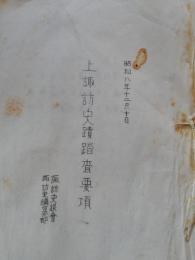 昭和八年十二月十日
上諏訪史蹟踏査要項
諏訪史談會
諏訪史編纂部